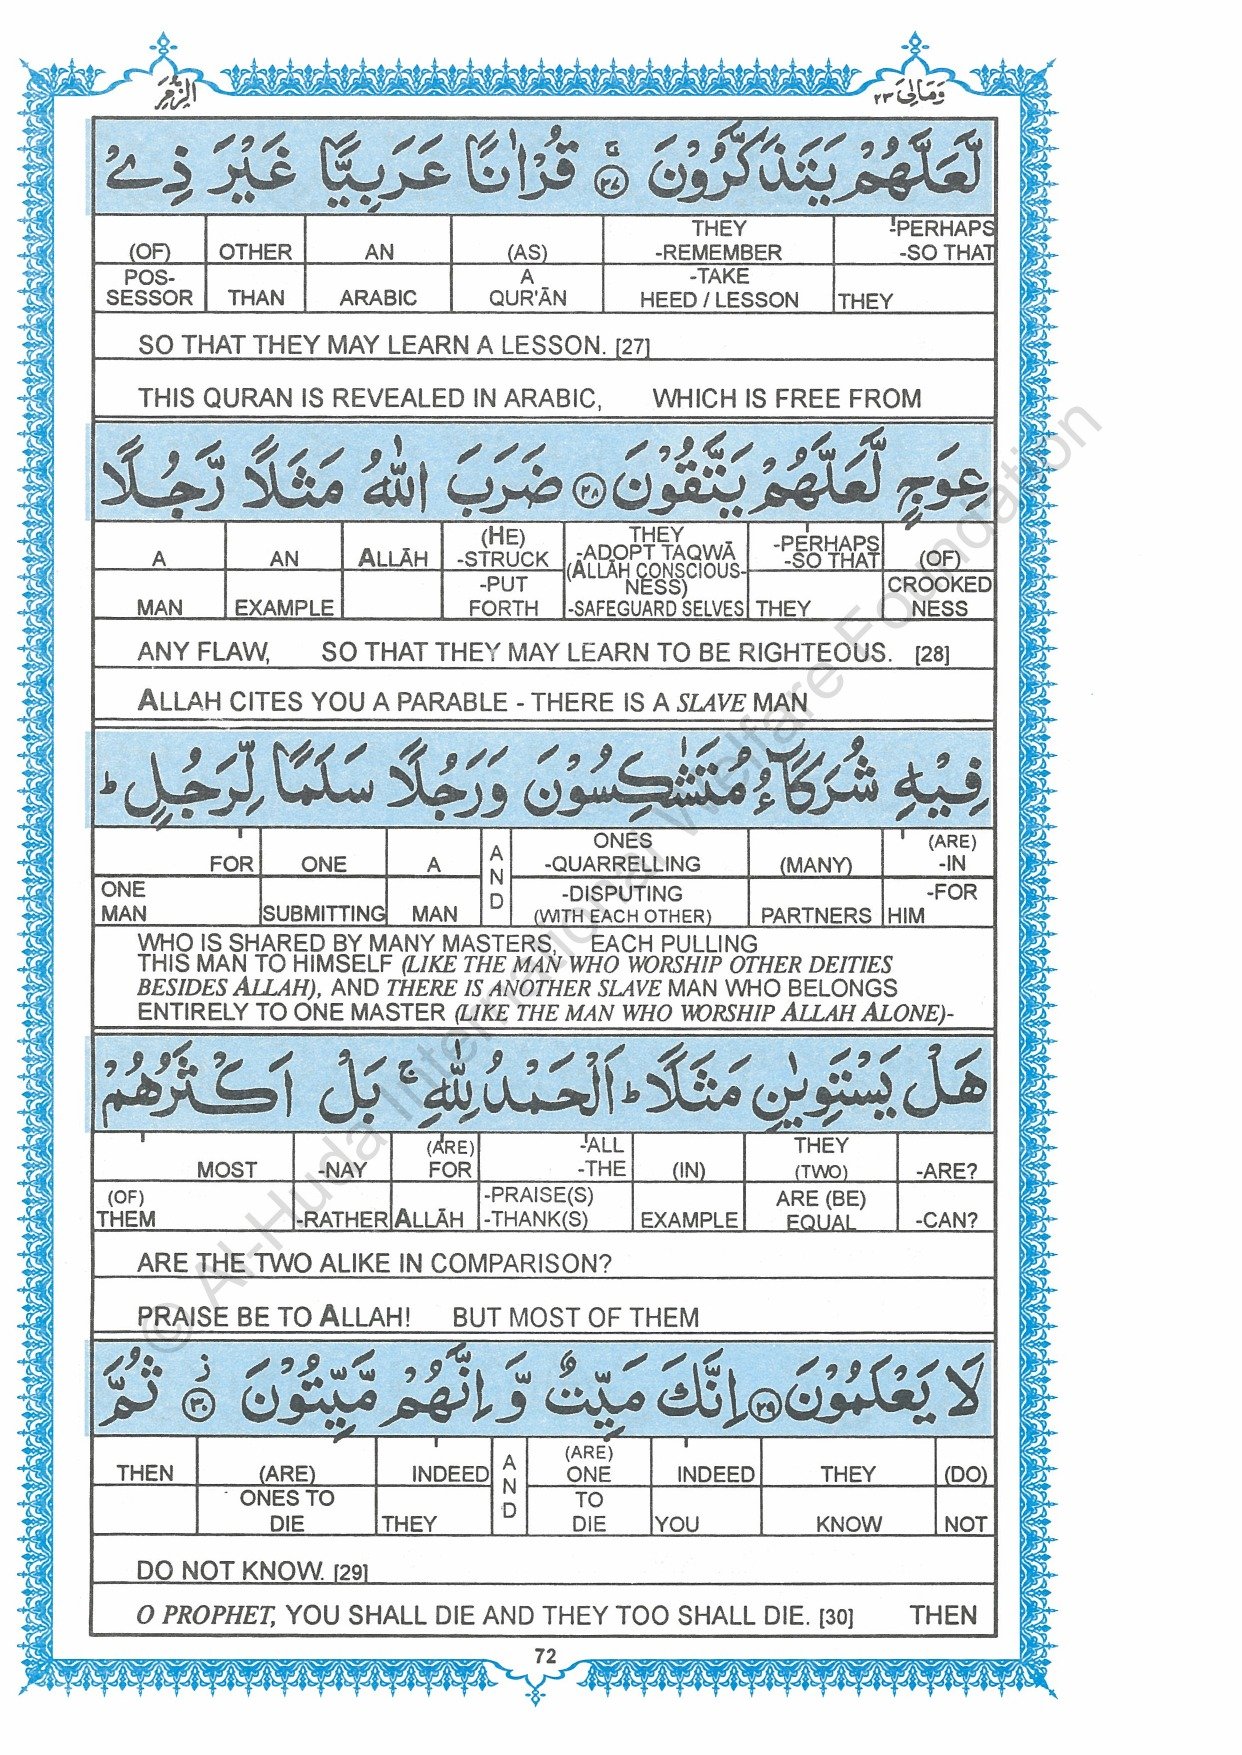 الزمر
وَمَالِىَ ٢٣
لَّعَلَّهُمْ يَتَذَكَّرُوْنَ ۚ ﴿٢٧﴾ قُرْاٰنًا عَرَبِيًّا غَيْرَ ذِىْ
(OF) OTHER AN (AS) THEY -REMEMBER -PERHAPS -SO THAT
POS-SESSOR THAN ARABIC A QUR'ĀN -TAKE HEED / LESSON THEY
SO THAT THEY MAY LEARN A LESSON. [27]
THIS QURAN IS REVEALED IN ARABIC, WHICH IS FREE FROM
عِوَجٍ لَّعَلَّهُمْ يَتَّقُوْنَ ﴿٢٨﴾ ضَرَبَ اللّٰهُ مَثَلًا رَّجُلًا
A AN ALLĀH (HE) -STRUCK THEY -ADOPT TAQWĀ -PERHAPS -SO THAT (OF)
MAN EXAMPLE -PUT FORTH (ALLĀH CONSCIOUS-NESS) -SAFEGUARD SELVES THEY CROOKED NESS
ANY FLAW, SO THAT THEY MAY LEARN TO BE RIGHTEOUS. [28]
ALLAH CITES YOU A PARABLE - THERE IS A SLAVE MAN
فِيْهِ شُرَكَآءُ مُتَشٰكِسُوْنَ وَرَجُلًا سَلَمًا لِّرَجُلٍ ؕ
FOR ONE A AND ONES -QUARRELLING (MANY) (ARE) -IN
ONE MAN SUBMITTING MAN -DISPUTING (WITH EACH OTHER) PARTNERS -FOR HIM
WHO IS SHARED BY MANY MASTERS, EACH PULLING
THIS MAN TO HIMSELF (LIKE THE MAN WHO WORSHIP OTHER DEITIES
BESIDES ALLAH), AND THERE IS ANOTHER SLAVE MAN WHO BELONGS
ENTIRELY TO ONE MASTER (LIKE THE MAN WHO WORSHIP ALLAH ALONE)-
هَلْ يَسْتَوِيٰنِ مَثَلًا ؕ اَلْحَمْدُ لِلّٰهِ ۚ بَلْ اَكْثَرُهُمْ
MOST -NAY (ARE) FOR -ALL -THE (IN) THEY (TWO) -ARE?
(OF) THEM -RATHER ALLĀH -PRAISE(S) -THANK(S) EXAMPLE ARE (BE) EQUAL -CAN?
ARE THE TWO ALIKE IN COMPARISON?
PRAISE BE TO ALLAH! BUT MOST OF THEM
لَا يَعْلَمُوْنَ ﴿٢٩﴾ اِنَّكَ مَيِّتٌ وَّ اِنَّهُمْ مَّيِّتُوْنَ ۫ ﴿٣٠﴾ ثُمَّ
THEN (ARE) INDEED AND (ARE) ONE INDEED THEY (DO)
ONES TO DIE THEY TO DIE YOU KNOW NOT
DO NOT KNOW. [29]
O PROPHET, YOU SHALL DIE AND THEY TOO SHALL DIE. [30] THEN
72
© Al-Huda International Welfare Foundation